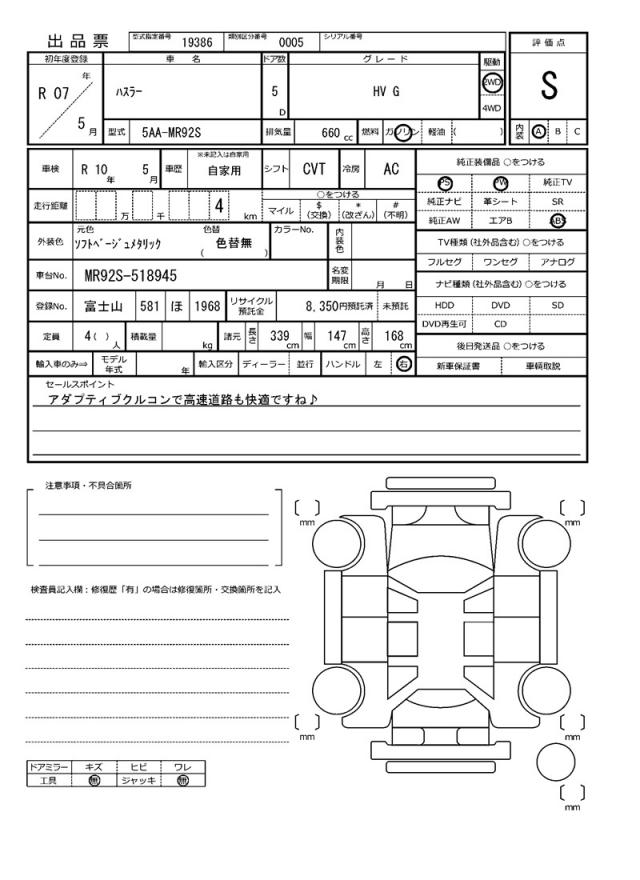 出品票 型式指定番号 19386 類別区分番号 0005 シリアル番号
評価点
S
内装 A B C
初年度登録 車名 ドア数 グレード 駆動
R 07 年 5 月 ハスラー 5 D HV G 2WD 4WD
型式 5AA-MR92S 排気量 660 cc 燃料 ガソリン 軽油 ( )
車検 R 10 年 5 月 車歴 ※未記入は自家用 自家用 シフト CVT 冷房 AC
走行距離 万 千 4 km ○をつける
マイル $ (交換) * (改ざん) # (不明)
外装色 元色 ソフトベージュメタリック 色替 ( 色替無 ) カラーNo. 内装色
車台No. MR92S-518945 名変期限 月 日
登録No. 富士山 581 ほ 1968 リサイクル預託金 8,350円預託済 未預託
定員 4 ( ) 人 積載量 kg 諸元 長さ 339 cm 幅 147 cm 高さ 168 cm
輸入車のみ⇒ モデル年式 年 輸入区分 ディーラー 並行 ハンドル 左 右
純正装備品 ○をつける
PS PW 純正TV
純正ナビ 革シート SR
純正AW エアB ABS
TV種類 (社外品含む) ○をつける
フルセグ ワンセグ アナログ
ナビ種類 (社外品含む) ○をつける
HDD DVD SD
DVD再生可 CD
後日発送品 ○をつける
新車保証書 車輌取説
セールスポイント
アダプティブクルコンで高速道路も快適ですね♪
注意事項・不具合箇所
検査員記入欄：修復歴「有」の場合は修復箇所・交換箇所を記入
ドアミラー キズ ヒビ ワレ
工具 無 ジャッキ 無
〔 〕 mm
〔 〕 mm
〔 〕 mm
〔 〕 mm
〔 〕 mm